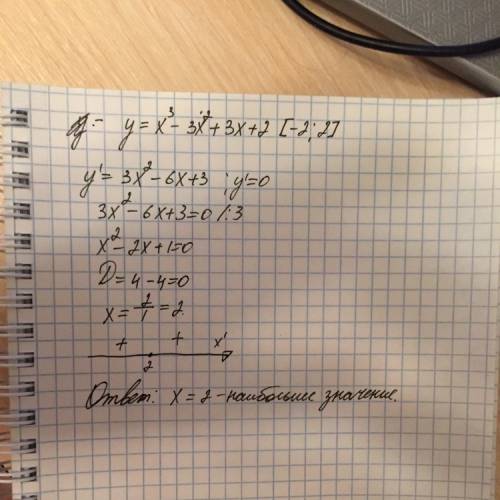 y = x³ - 3x² + 3x + 2 [-2; 2]
y' = 3x² - 6x + 3 ; y' = 0
3x² - 6x + 3 = 0 /:3
x² - 2x + 1 = 0
D = 4 - 4 = 0
x = 2/1 = 2
+ + x'
2
Ответ: x = 2 - наибольшее значение.